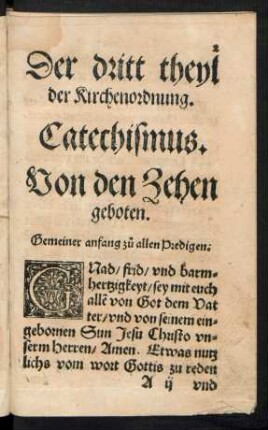 2
Der dritt theyl
der Kirchenordnung.
Catechismus.
Von den Zehen
geboten.
Gemeiner anfang zů allen Predigen:
GNad/ frid/ vnd barm⸗
hertzigkeyt/ sey mit euch
allē von Got dem Vat
ter/ vnd von seinem ein⸗
gebornen Sun Jesu Christo vn⸗
serm Herren/ Amen. Etwas nutz
lichs vom wort Gottis zu reden
A ij vnd